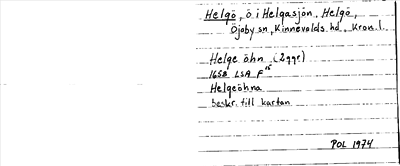 Helgö, ö i Helgasjön, Helgö,
Öjaby sn, Kinnevalds hd, Kron.l.
Helge öhn (2 ggr)
1658 LSA F
Helgeöhna
beskr. till kartan
POL 1974